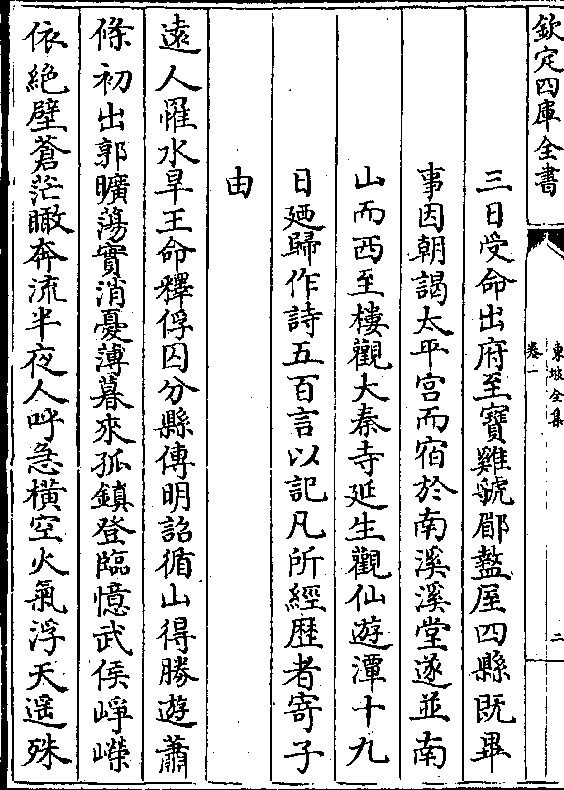 欽定四庫全書
東坡全集
卷一
二
三日受命出府至寶雞虢郿盩厔四縣既畢
事因朝謁太平宫而宿於南溪溪堂遂並南
山而西至樓觀大秦寺延生觀仙遊潭十九
日廼歸作詩五百言以記凡所經歴者寄子
由
遠人罹水旱王命釋俘囚分縣傳明詔循山得勝遊蕭
條初出郭曠蕩實消憂薄暮來孤鎮登臨憶武侯崢嶸
依絶壁蒼茫瞰奔流半夜人呼急横空火氣浮天遥殊